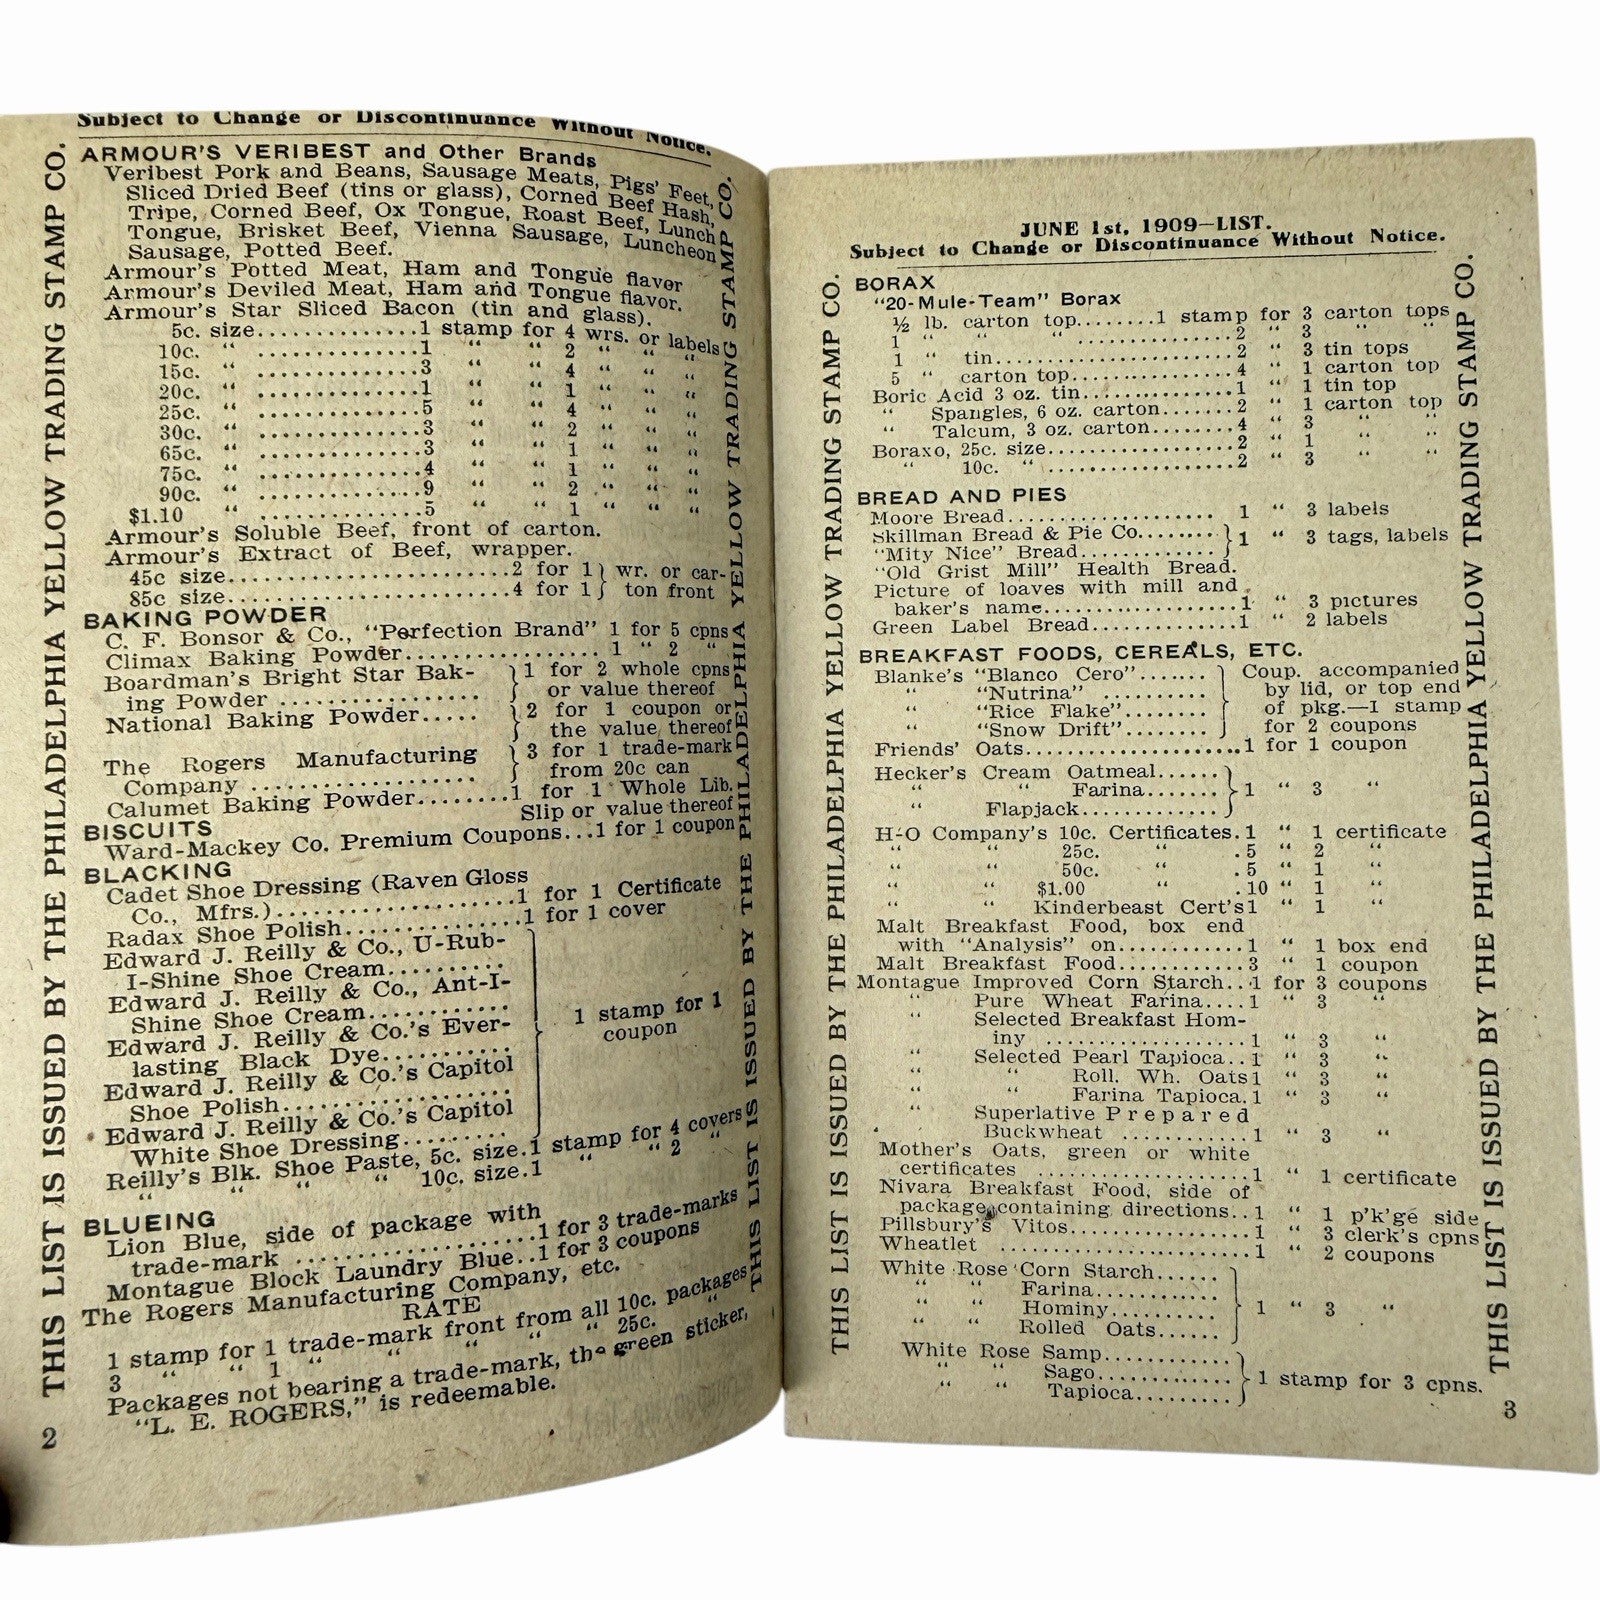 Subject to Change or Discontinuance Without Notice.
ARMOUR'S VERIBEST and Other Brands
Veribest Pork and Beans, Sausage Meats, Pigs' Feet,
Sliced Dried Beef (tins or glass), Corned Beef Hash,
Tripe, Corned Beef, Ox Tongue, Roast Beef, Lunch
Tongue, Brisket Beef, Vienna Sausage, Luncheon
Sausage, Potted Beef.
Armour's Potted Meat, Ham and Tongue flavor
Armour's Deviled Meat, Ham and Tongue flavor.
Armour's Star Sliced Bacon (tin and glass).
5c. size..............1 stamp for 4 wrs. or labels
10c. “ ..............1 “ “ 2 “ “ “
15c. “ ..............3 “ “ 4 “ “ “
20c. “ ..............1 “ “ 1 “ “ “
25c. “ ..............5 “ “ 4 “ “ “
30c. “ ..............3 “ “ 2 “ “ “
65c. “ ..............3 “ “ 1 “ “ “
75c. “ ..............4 “ “ 1 “ “ “
90c. “ ..............9 “ “ 2 “ “ “
$1.10 “ ..............5 “ “ 1 “ “ “
Armour's Soluble Beef, front of carton.
Armour's Extract of Beef, wrapper.
45c size........................2 for 1} wr. or car-
85c size........................4 for 1} ton front
BAKING POWDER
C. F. Bonsor & Co., “Perfection Brand” 1 for 5 cpns
Climax Baking Powder.................. 1 “ 2 “
Boardman's Bright Star Bak- } 1 for 2 whole cpns
ing Powder .................. } or value thereof
National Baking Powder..... } 2 for 1 coupon or
the value thereof
The Rogers Manufacturing } 3 for 1 trade-mark
Company .................. } from 20c can
Calumet Baking Powder........1 for 1 Whole Lib.
Slip or value thereof
BISCUITS
Ward-Mackey Co. Premium Coupons...1 for 1 coupon
BLACKING
Cadet Shoe Dressing (Raven Gloss
Co., Mfrs.)......................1 for 1 Certificate
Radax Shoe Polish................1 for 1 cover
Edward J. Reilly & Co., U-Rub-
I-Shine Shoe Cream..........
Edward J. Reilly & Co., Ant-I-
Shine Shoe Cream............
Edward J. Reilly & Co.'s Ever- } 1 stamp for 1
lasting Black Dye........... } coupon
Edward J. Reilly & Co.'s Capitol
Shoe Polish....................
Edward J. Reilly & Co.'s Capitol
White Shoe Dressing.........
Reilly's Blk. Shoe Paste, 5c. size.1 stamp for 4 covers
“ “ “ “ 10c. size.1 “ “ 2 “
BLUEING
Lion Blue, side of package with
trade-mark ....................1 for 3 trade-marks
Montague Block Laundry Blue..1 for 3 coupons
The Rogers Manufacturing Company, etc.
RATE
1 stamp for 1 trade-mark front from all 10c. packages
3 “ “ 1 “ “ “ “ 25c. “
Packages not bearing a trade-mark, the green sticker,
“L. E. ROGERS,” is redeemable.
2
THIS LIST IS ISSUED BY THE PHILADELPHIA YELLOW TRADING STAMP CO.
THIS LIST IS ISSUED BY THE PHILADELPHIA YELLOW TRADING STAMP CO.
JUNE 1st, 1909—LIST.
Subject to Change or Discontinuance Without Notice.
BORAX
“20-Mule-Team” Borax
½ lb. carton top........1 stamp for 3 carton tops
1 “ “ “ ..............2 “ 3 “ “
1 “ tin......................2 “ 3 tin tops
5 “ carton top...............4 “ 1 carton top
Boric Acid 3 oz. tin..............1 “ 1 tin top
“ Spangles, 6 oz. carton.......2 “ 1 carton top
“ Talcum, 3 oz. carton........4 “ 3 “ “
Boraxo, 25c. size..................2 “ 1 “ “
“ 10c. “ ..................2 “ 3
BREAD AND PIES
Moore Bread..................... 1 “ 3 labels
Skillman Bread & Pie Co........ } 1 “ 3 tags, labels
“Mity Nice” Bread............. }
“Old Grist Mill” Health Bread.
Picture of loaves with mill and
baker's name...................1 “ 3 pictures
Green Label Bread..............1 “ 2 labels
BREAKFAST FOODS, CEREALS, ETC.
Blanke's “Blanco Cero”....... } Coup. accompanied
“ “Nutrina” .......... } by lid, or top end
“ “Rice Flake”........ } of pkg.—1 stamp
“ “Snow Drift”........ } for 2 coupons
Friends' Oats.....................1 for 1 coupon
Hecker's Cream Oatmeal...... }
“ “ Farina....... } 1 “ 3 “
“ Flapjack............. }
H-O Company's 10c. Certificates.1 “ 1 certificate
“ “ 25c. “ .5 “ 2 “
“ “ 50c. “ .5 “ 1 “
“ “ $1.00 “ .10 “ 1 “
“ “ Kinderbeast Cert's1 “ 1 “
Malt Breakfast Food, box end
with “Analysis” on............1 “ 1 box end
Malt Breakfast Food............3 “ 1 coupon
Montague Improved Corn Starch..1 for 3 coupons
“ Pure Wheat Farina....1 “ 3 “
“ Selected Breakfast Hom-
iny ....................1 “ 3 “
“ Selected Pearl Tapioca..1 “ 3 “
“ “ Roll. Wh. Oats1 “ 3 “
“ “ Farina Tapioca.1 “ 3 “
“ Superlative Prepared
Buckwheat ............1 “ 3 “
Mother's Oats, green or white
certificates ......................1 “ 1 certificate
Nivara Breakfast Food, side of
package containing directions..1 “ 1 p'k'ge side
Pillsbury's Vitos..................1 “ 3 clerk's cpns
Wheatlet ..........................1 “ 2 coupons
White Rose Corn Starch...... }
“ “ Farina............ } 1 “ 3 “
“ “ Hominy.......... }
“ “ Rolled Oats...... }
White Rose Samp............ }
“ “ Sago.............. } 1 stamp for 3 cpns.
“ “ Tapioca.......... }
3
THIS LIST IS ISSUED BY THE PHILADELPHIA YELLOW TRADING STAMP CO.
THIS LIST IS ISSUED BY THE PHILADELPHIA YELLOW TRADING STAMP CO.